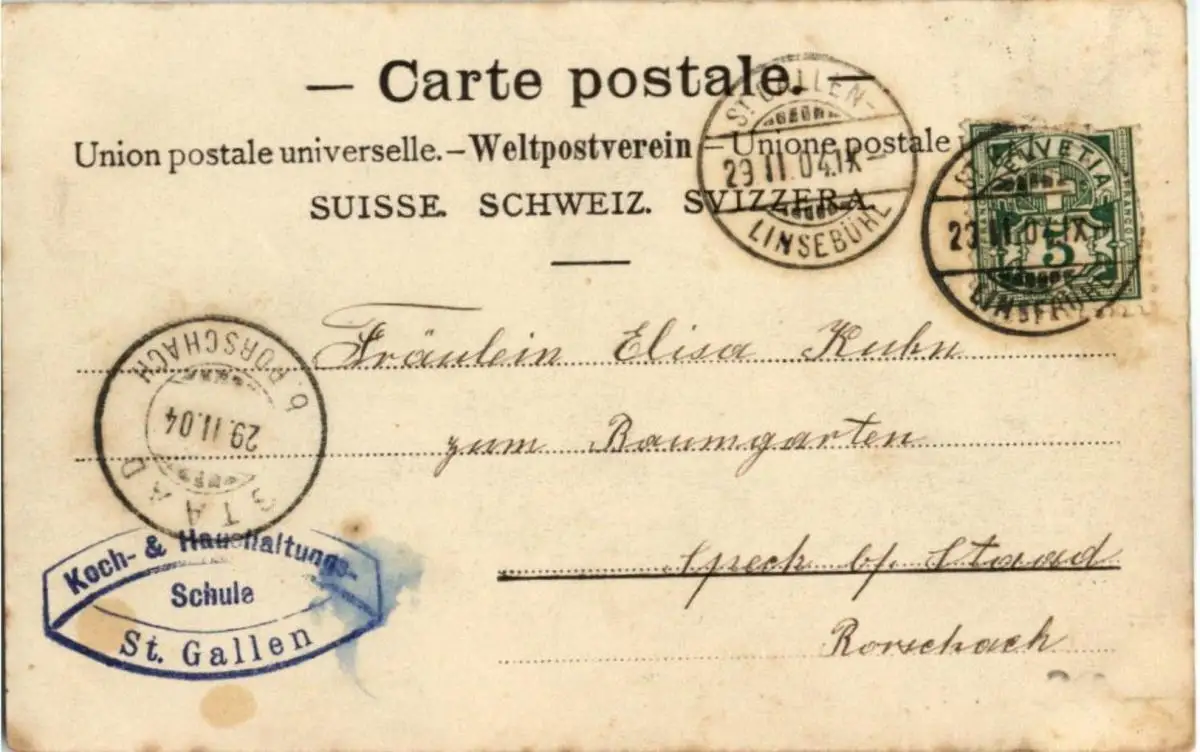 — Carte postale. —
Union postale universelle. – Weltpostverein – Unione postale
SUISSE. SCHWEIZ. SVIZZERA.
ST. GALLEN-
29.II.04.IX–
LINSEBÜHL
HELVETIA
FRANCO
5
ST.
29.II.04.IX
LINSEBÜHL
Fräulein Elisa Kuhn
zum Baumgarten
Speck b/ Staad
Rorschach
STAAD
29.II.04
b. RORSCHACH
Koch- & Haushaltungs-
Schule
St. Gallen